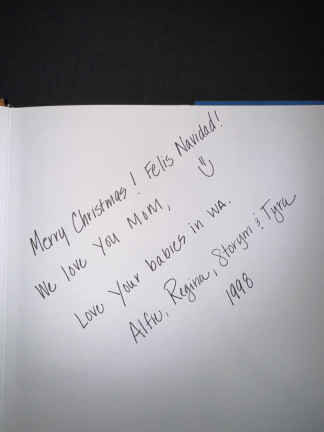 Merry Christmas! Felis Navidad!
We love you Mom,
Love your babies in WA.
Alfie, Regina, Storym & Tyra
1998